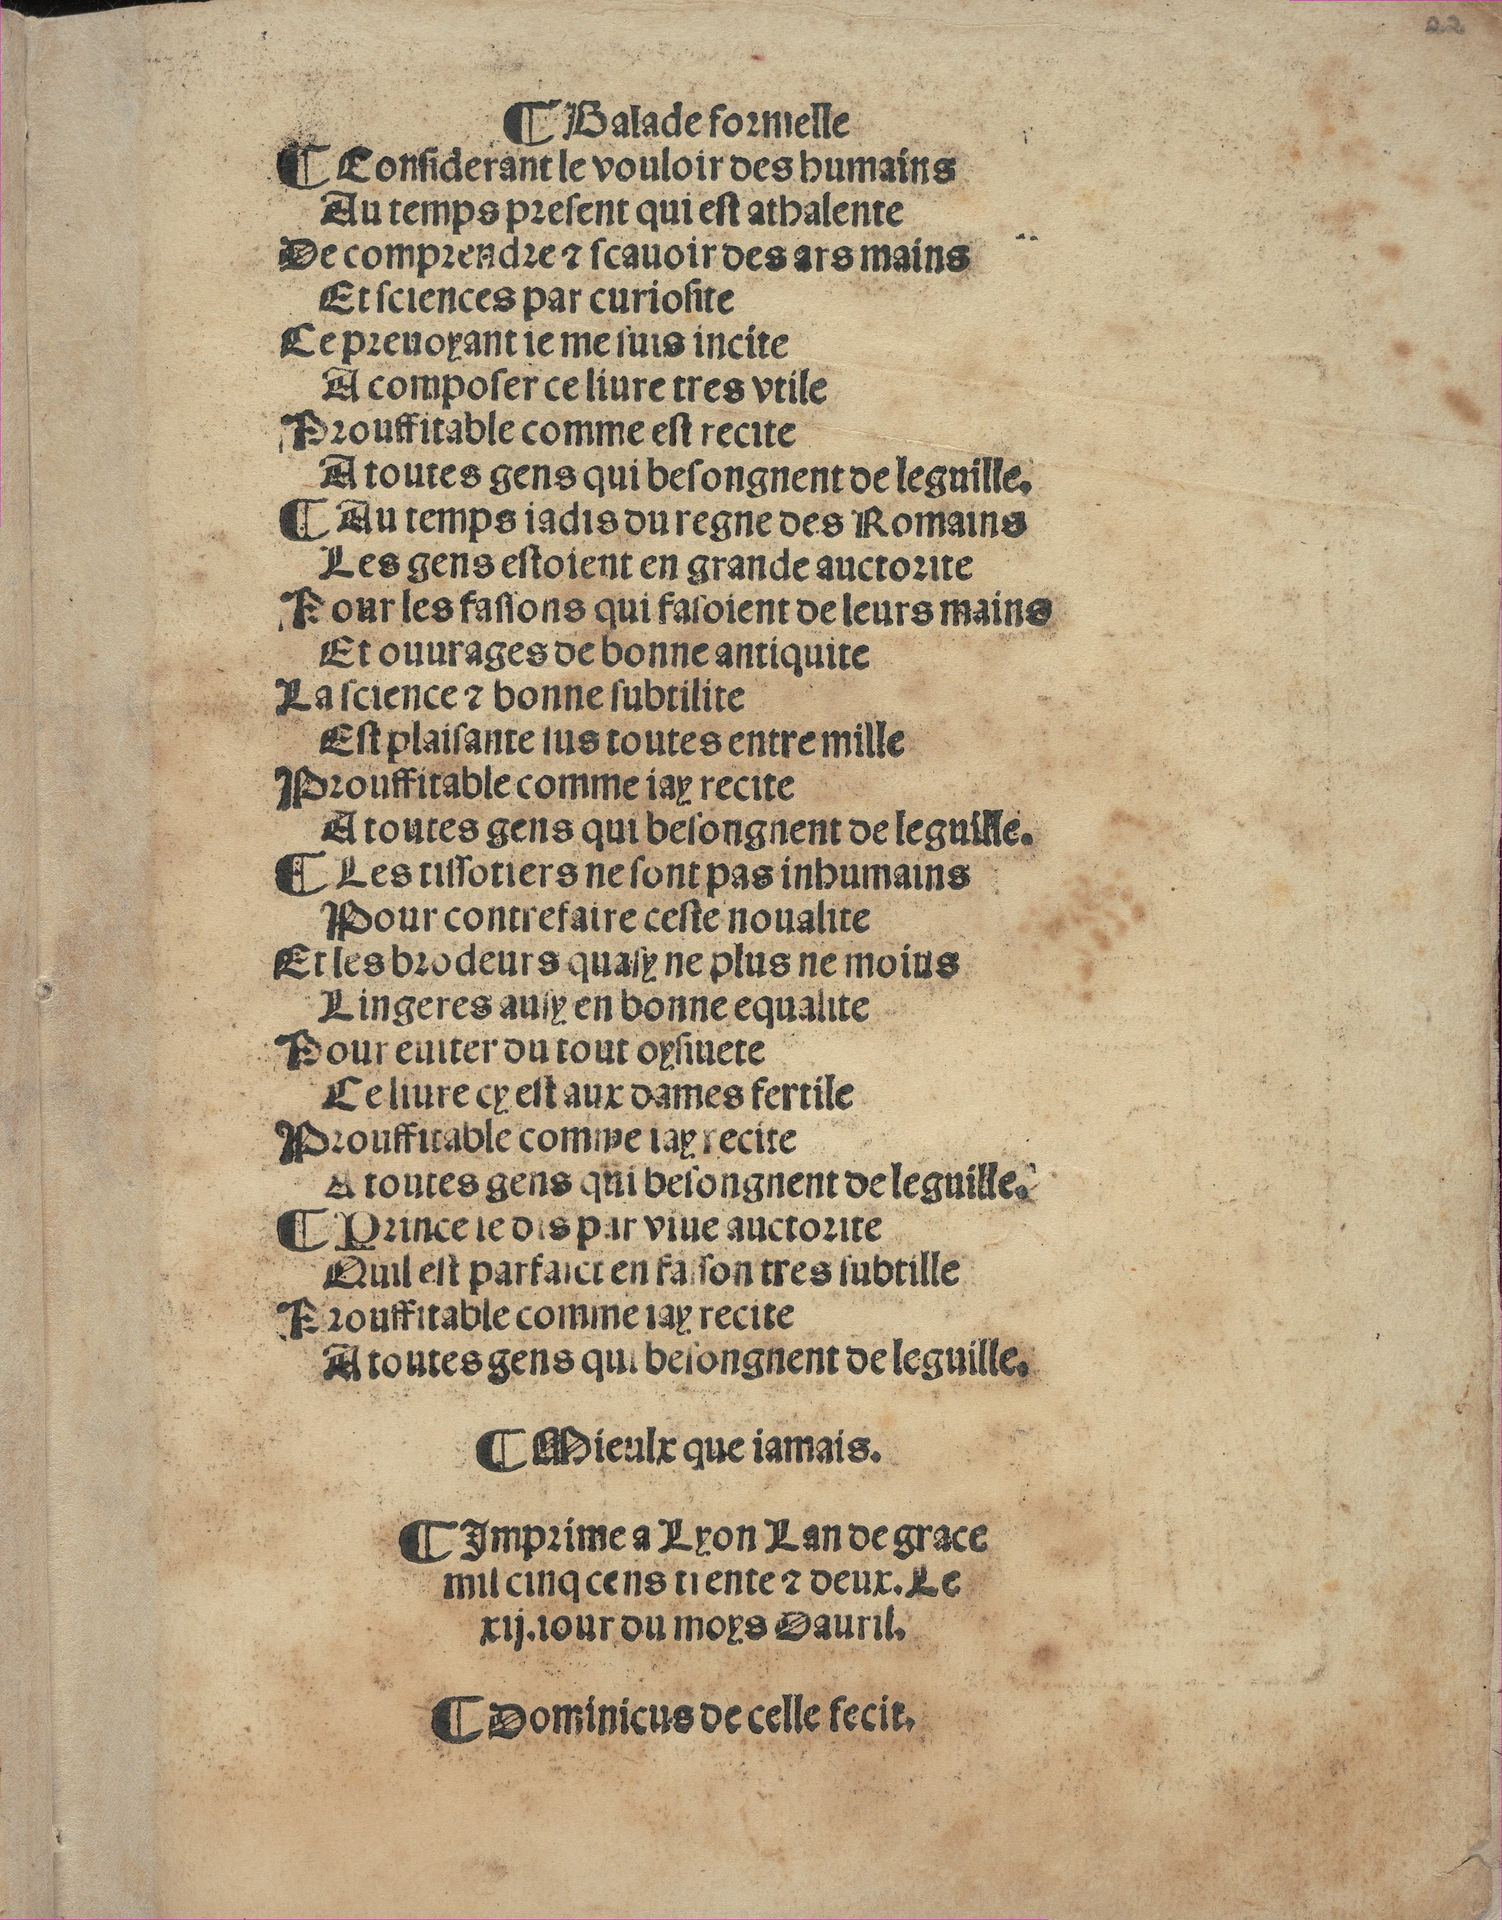 22
¶ Balade formelle
¶ Considerant le vouloir des humains
Au temps present qui est athalente
De comprendre ⁊ scauoir des ars mains
Et sciences par curiosite
Ce preuoyant ie me suis incite
A composer ce liure tres vtile
Prouffitable comme est recite
A toutes gens qui besongnent de leguille.
¶ Au temps iadis du regne des Romains
Les gens estoient en grande auctorite
Pour les fasions qui fasoient de leurs mains
Et ouurages de bonne antiquite
La science ⁊ bonne subtilite
Est plaisante sus toutes entre mille
Prouffitable comme iay recite
A toutes gens qui besongnent de leguille.
¶ Les tissotiers ne sont pas inhumains
Pour contrefaire ceste noualite
Et les brodeurs quasy ne plus ne moins
Lingeres ausy en bonne equalite
Pour euiter du tout oysiuete
Ce liure cy est aux dames fertile
Prouffitable comme iay recite
A toutes gens qui besongnent de leguille.
¶ Prince ie dis par viue auctorite
Quil est parfaict en faison tres subtille
Prouffitable comme iay recite
A toutes gens qui besongnent de leguille.
¶ Mieulx que iamais.
¶ Imprime a Lyon Lan de grace
mil cinq cens trente ⁊ deux. Le
xij. iour du moys Dauril.
¶ Dominicus de celle fecit.